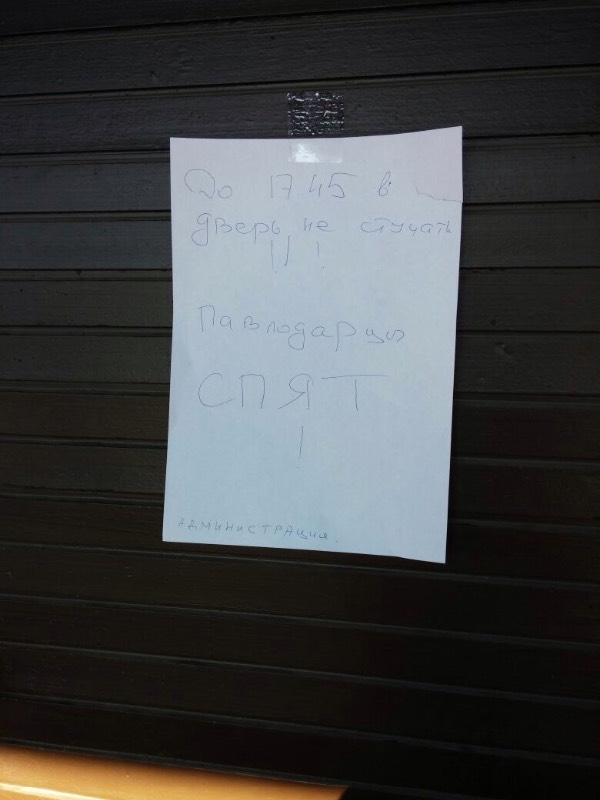 До 17 45 в
дверь не стучать
!! !
Павлодарцы
СПЯТ
!
АДМИНИСТРАЦИЯ.